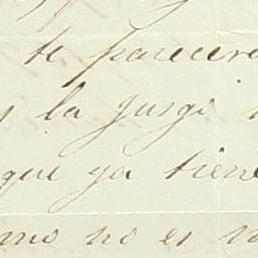 te parecera
la jusgo
que ya tiene
mo no es